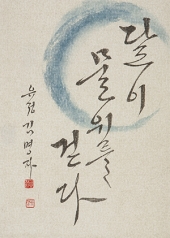 달이
물 위를
걷다
유정 김명자